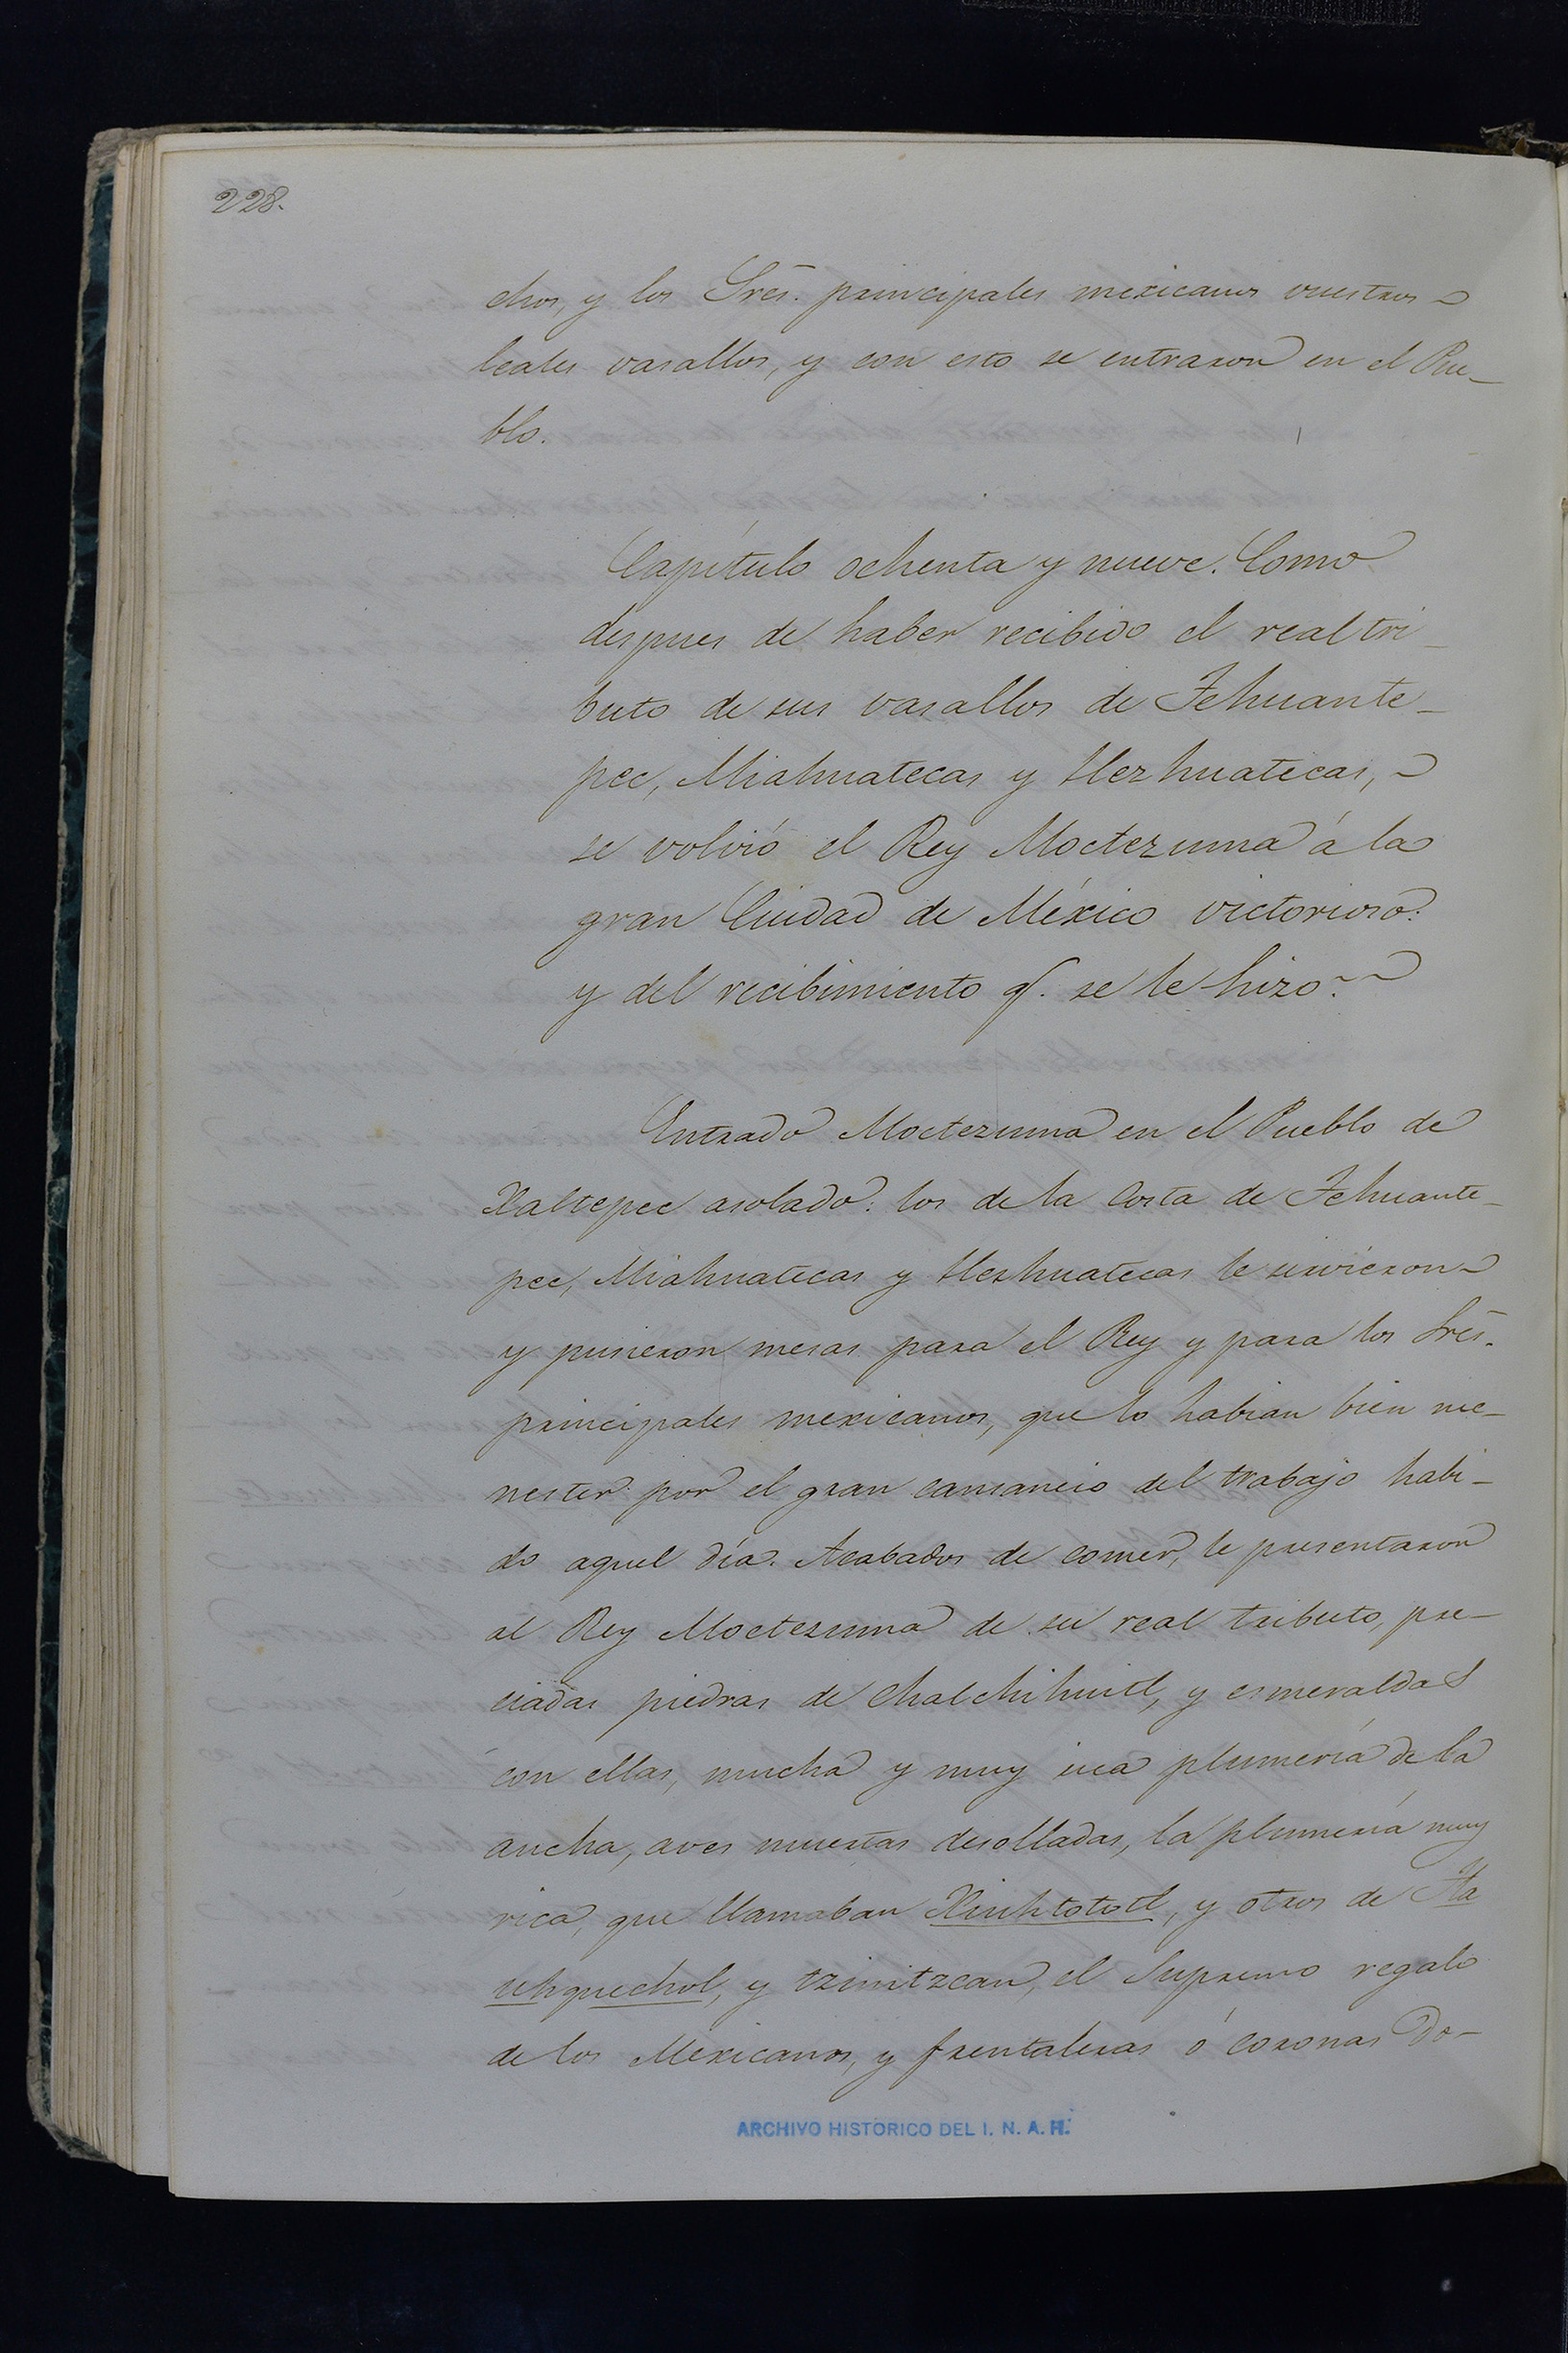 228.
chos, y los Sres. principales mexicanos vuestros
leales vasallos, y con esto se entraron en el Pue-
blo.
Capítulo ochenta y nueve. Como
despues de haber recibido el real tri-
buto de sus vasallos de Tehuante-
pec, Miahuatecas y Yezhuatecas,
se volvió el Rey Moctezuma á la
gran Ciudad de México victorioso:
y del recibimiento q. se le hizo.
Entrado Moctezuma en el Pueblo de
Xaltepec asolado: los de la Costa de Tehuante-
pec, Miahuatecas y Yezhuatecas le sirvieron
y pusieron mesas para el Rey y para los Sres.
principales mexicanos, que lo habian bien me-
nester por el gran cansancio del trabajo habi-
do aquel día. Acabados de comer, le presentaron
al Rey Moctezuma de su real tributo, pre-
ciadas piedras de Chalchihuitl, y esmeraldas
con ellas, mucha y muy rica plumería de la
ancha, aves muertas desolladas, la plumería muy
rica, que llamaban Xiuhtototl, y otros de Tla
uhquechol, y tzinitzcan, el Supremo regalo
de los Mexicanos, y frentaleras ó coronas do-
ARCHIVO HISTORICO DEL I. N. A. H.